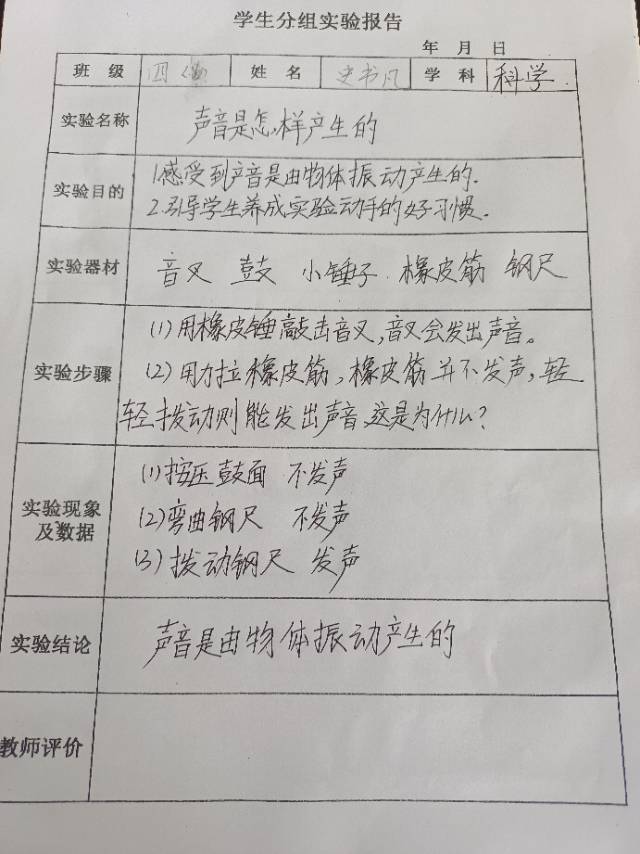 学生分组实验报告
年 月 日
班 级 四 姓 名 史书凡 学 科 科学
实验名称 声音是怎样产生的
实验目的 1.感受到声音是由物体振动产生的.
2.引导学生养成实验动手的好习惯.
实验器材 音叉 鼓 小锤子 橡皮筋 钢尺
实验步骤 (1)用橡皮锤敲击音叉,音叉会发出声音。
(2)用力拉橡皮筋,橡皮筋并不发声,轻
轻拨动则能发出声音,这是为什么?
实验现象及数据 (1)按压鼓面 不发声
(2)弯曲钢尺 不发声
(3)拨动钢尺 发声
实验结论 声音是由物体振动产生的
教师评价